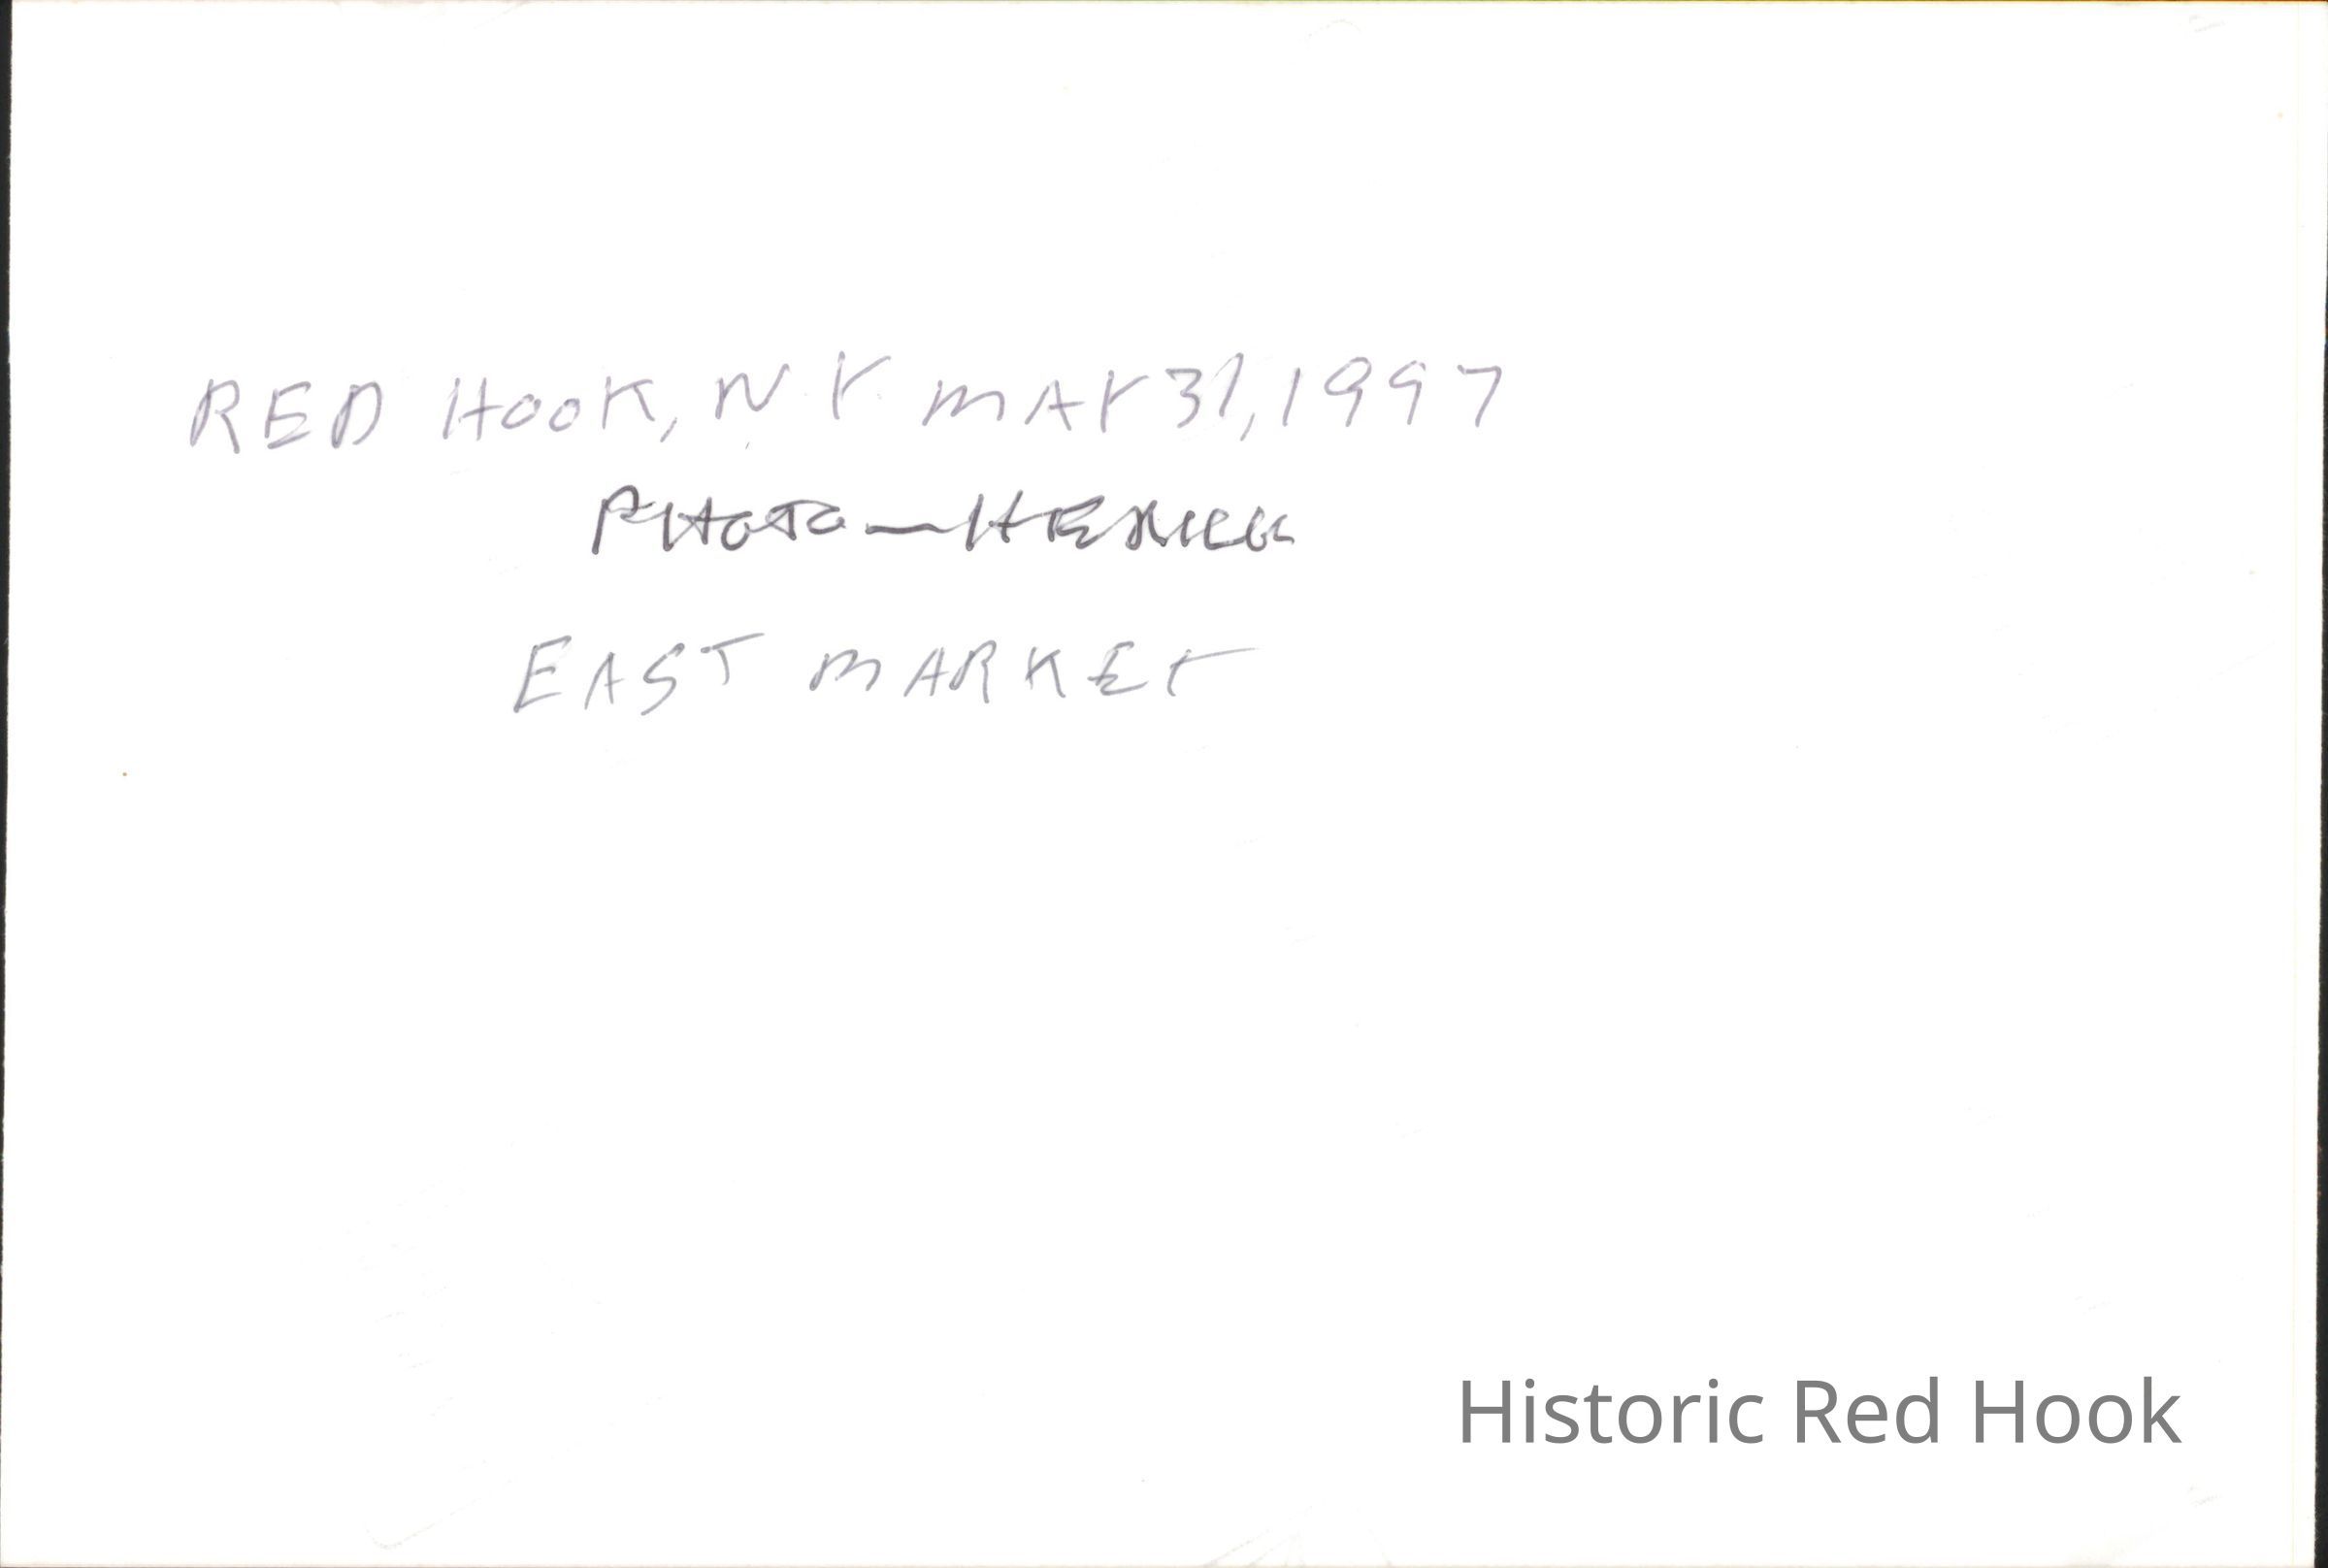 RED HOOK, N.Y. MAY 31, 1997
PHOTO —
EAST MARKET
Historic Red Hook